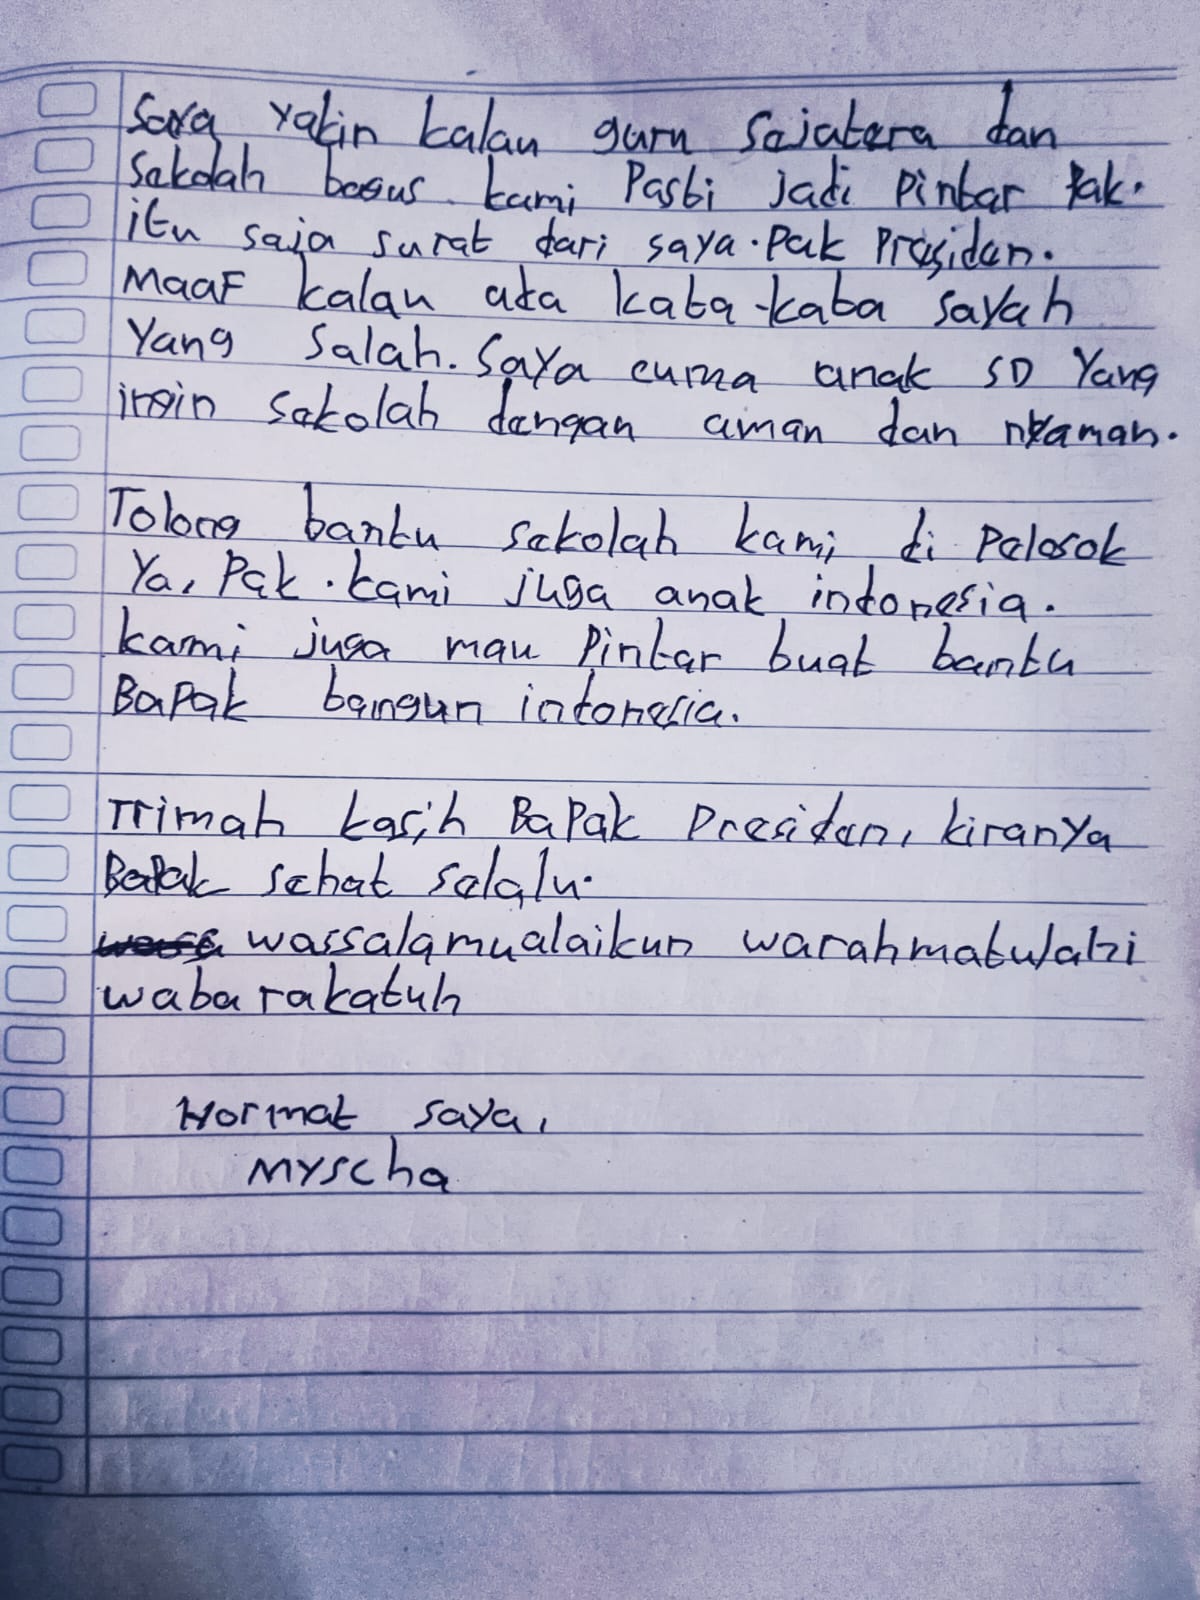 Saya yakin kalau guru Sejatera dan
Sekolah bagus kami Pasti jadi Pintar Pak.
itu saja surat dari saya. Pak Presiden.
MaaF kalau ada kata-kata sayah
Yang salah. Saya cuma anak SD Yang
ingin sekolah dengan aman dan nyaman.
Tolong bantu sekolah kami di Pelosok
Ya, Pak. kami juga anak indonesia.
kami juga mau Pintar buat bantu
BaPak bangun indonesia.
Trimah kasih BaPak Presiden, kiranya
BaPak sehat selalu.
wassalamualaikun warahmatulahi
wabarakatuh
Hormat saya,
MYscha